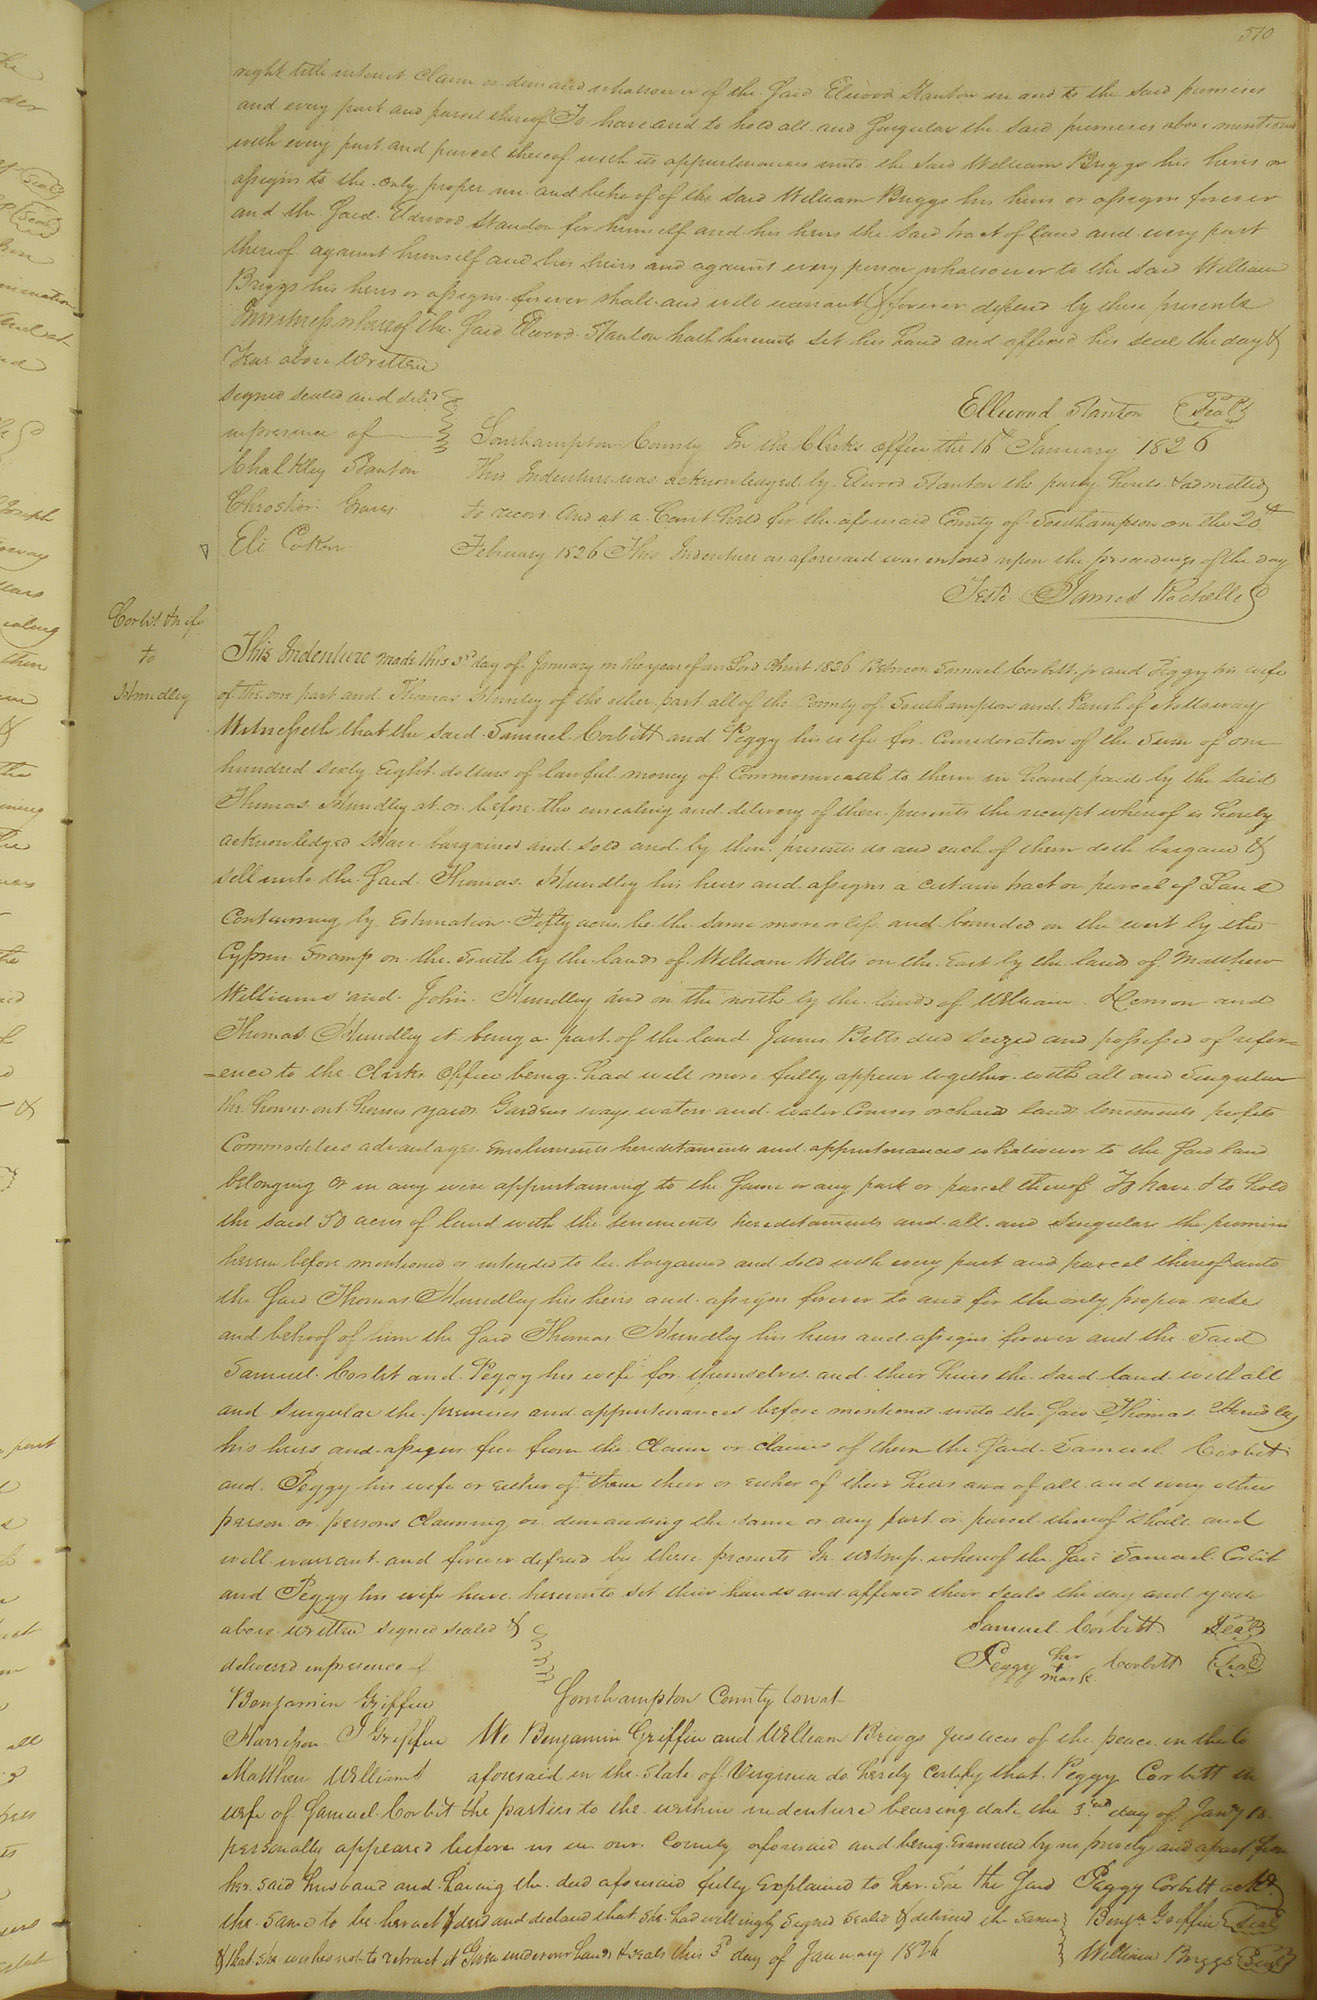 510
right title interest Claim or demand whatsoever of the Said Elwood Stanton in and to the said premises
and every part and parcel thereof To have and to hold all and Singular the said premises above mentioned
with every part and parcel thereof with its appurtenances unto the said William Briggs his heirs or
assigns to the only proper use and behoof of the said William Briggs his heirs or assigns forever
and the Said Elwood Stanton for himself and his heirs the said tract of land and every part
thereof against himself and his heirs and against every person whatsoever to the said William
Briggs his heirs or assigns forever shall and will warrant & forever defend by these presents
In witness whereof the Said Elwood Stanton hath hereunto set his hand and affixed his seal the day &
Year above Written
signed sealed and deld
in presence of
Ellwood Stanton Seal
Chalkley Stanton
Eli Cotton
Southampton County In the Clerks office the 16th January 1826
This Indenture was acknowledged by Elwood Stanton the party hereto & admitted
to record And at a Court held for the aforesaid County of Southampton on the 20th
February 1826 This Indenture as aforesaid was entered upon the proceedings of the day
Teste James Rochelle
Corbit & wife
to
Hundley
This Indenture made this 3rd day of January in the year of our Lord Christ 1826 Between Samuel Corbitt jr and Peggy his wife
of the one part and Thomas Hundley of the other part all of the County of Southampton and Parish of Nottoway
Witnesseth that the said Samuel Corbitt and Peggy his wife for Consideration of the Sum of one
hundred sixty Eight dollars of lawful money of Commonwealth to them in hand paid by the said
Thomas Hundley at or before the ensealing and delivery of these presents the receipt whereof is hereby
acknowledged Have bargained and sold and by these presents do and each of them doth bargain &
sell unto the Said Thomas Hundley his heirs and assigns a certain tract or parcel of Land
Containing by Estimation Fifty acres be the same more or less and bounded on the west by the
Cypress Swamp on the South by the lands of William Wells on the East by the lands of Matthew
Williams and John Hundley and on the north by the lands of William Henson and
Thomas Hundley it being a part of the land James Betts died seized and possessed of refer=
=ence to the Clerks office being had will more fully appear together with all and Singular
the houses out houses yards Gardens ways waters and water Courses orchard lands tenements profits
Commodities advantages Emoluments hereditaments and appurtenances whatsoever to the Said land
belonging or in any wise appurtaining to the Same or any part or parcel thereof To have & to hold
the said 50 acres of land with the tenements hereditaments and all and Singular the premises
herein before mentioned or intended to be bargained and sold with every part and parcel thereof unto
the Said Thomas Hundley his heirs and assigns forever to and for the only proper use
and behoof of him the Said Thomas Hundley his heirs and assigns forever and the Said
Samuel Corbit and Peggy his wife for themselves and their heirs the said land with all
and Singular the premises and appurtenances before mentioned unto the Said Thomas Hundley
his heirs and assigns free from the Claim or Claims of them the Said Samuel Corbit
and Peggy his wife or Either of them their or either of their heirs and of all and every other
person or persons Claiming or demanding the same or any part or parcel thereof Shall and
will warrant and forever defend by these presents In witness whereof the Said Samuel Corbit
and Peggy his wife have hereunto set their hands and affixed their seals the day and year
above written signed sealed &
delivered in presence of
Samuel Corbitt Seal
Peggy her + mark Corbitt Seal
Benjamin Griffin
Harrison J Griffin
Matthew Williams
Southampton County towit
We Benjamin Griffin and William Briggs Justices of the peace in the Co
aforesaid in the State of Virginia do hereby Certify that Peggy Corbitt
wife of Samuel Corbit the parties to the within indenture bearing date the 3rd day of Jany 18
personally appeared before us in our County aforesaid and being Examined by us privily and apart from
her said husband and having the deed aforesaid fully Explained to her She the Said Peggy Corbitt ackd
the same to be her act & deed and declared that she had willingly Signed Sealed & delivered the same
& that she wishes not to retract it Given under our hands & seals this 3d day of January 1826
Benja Griffin Seal
William Briggs Seal